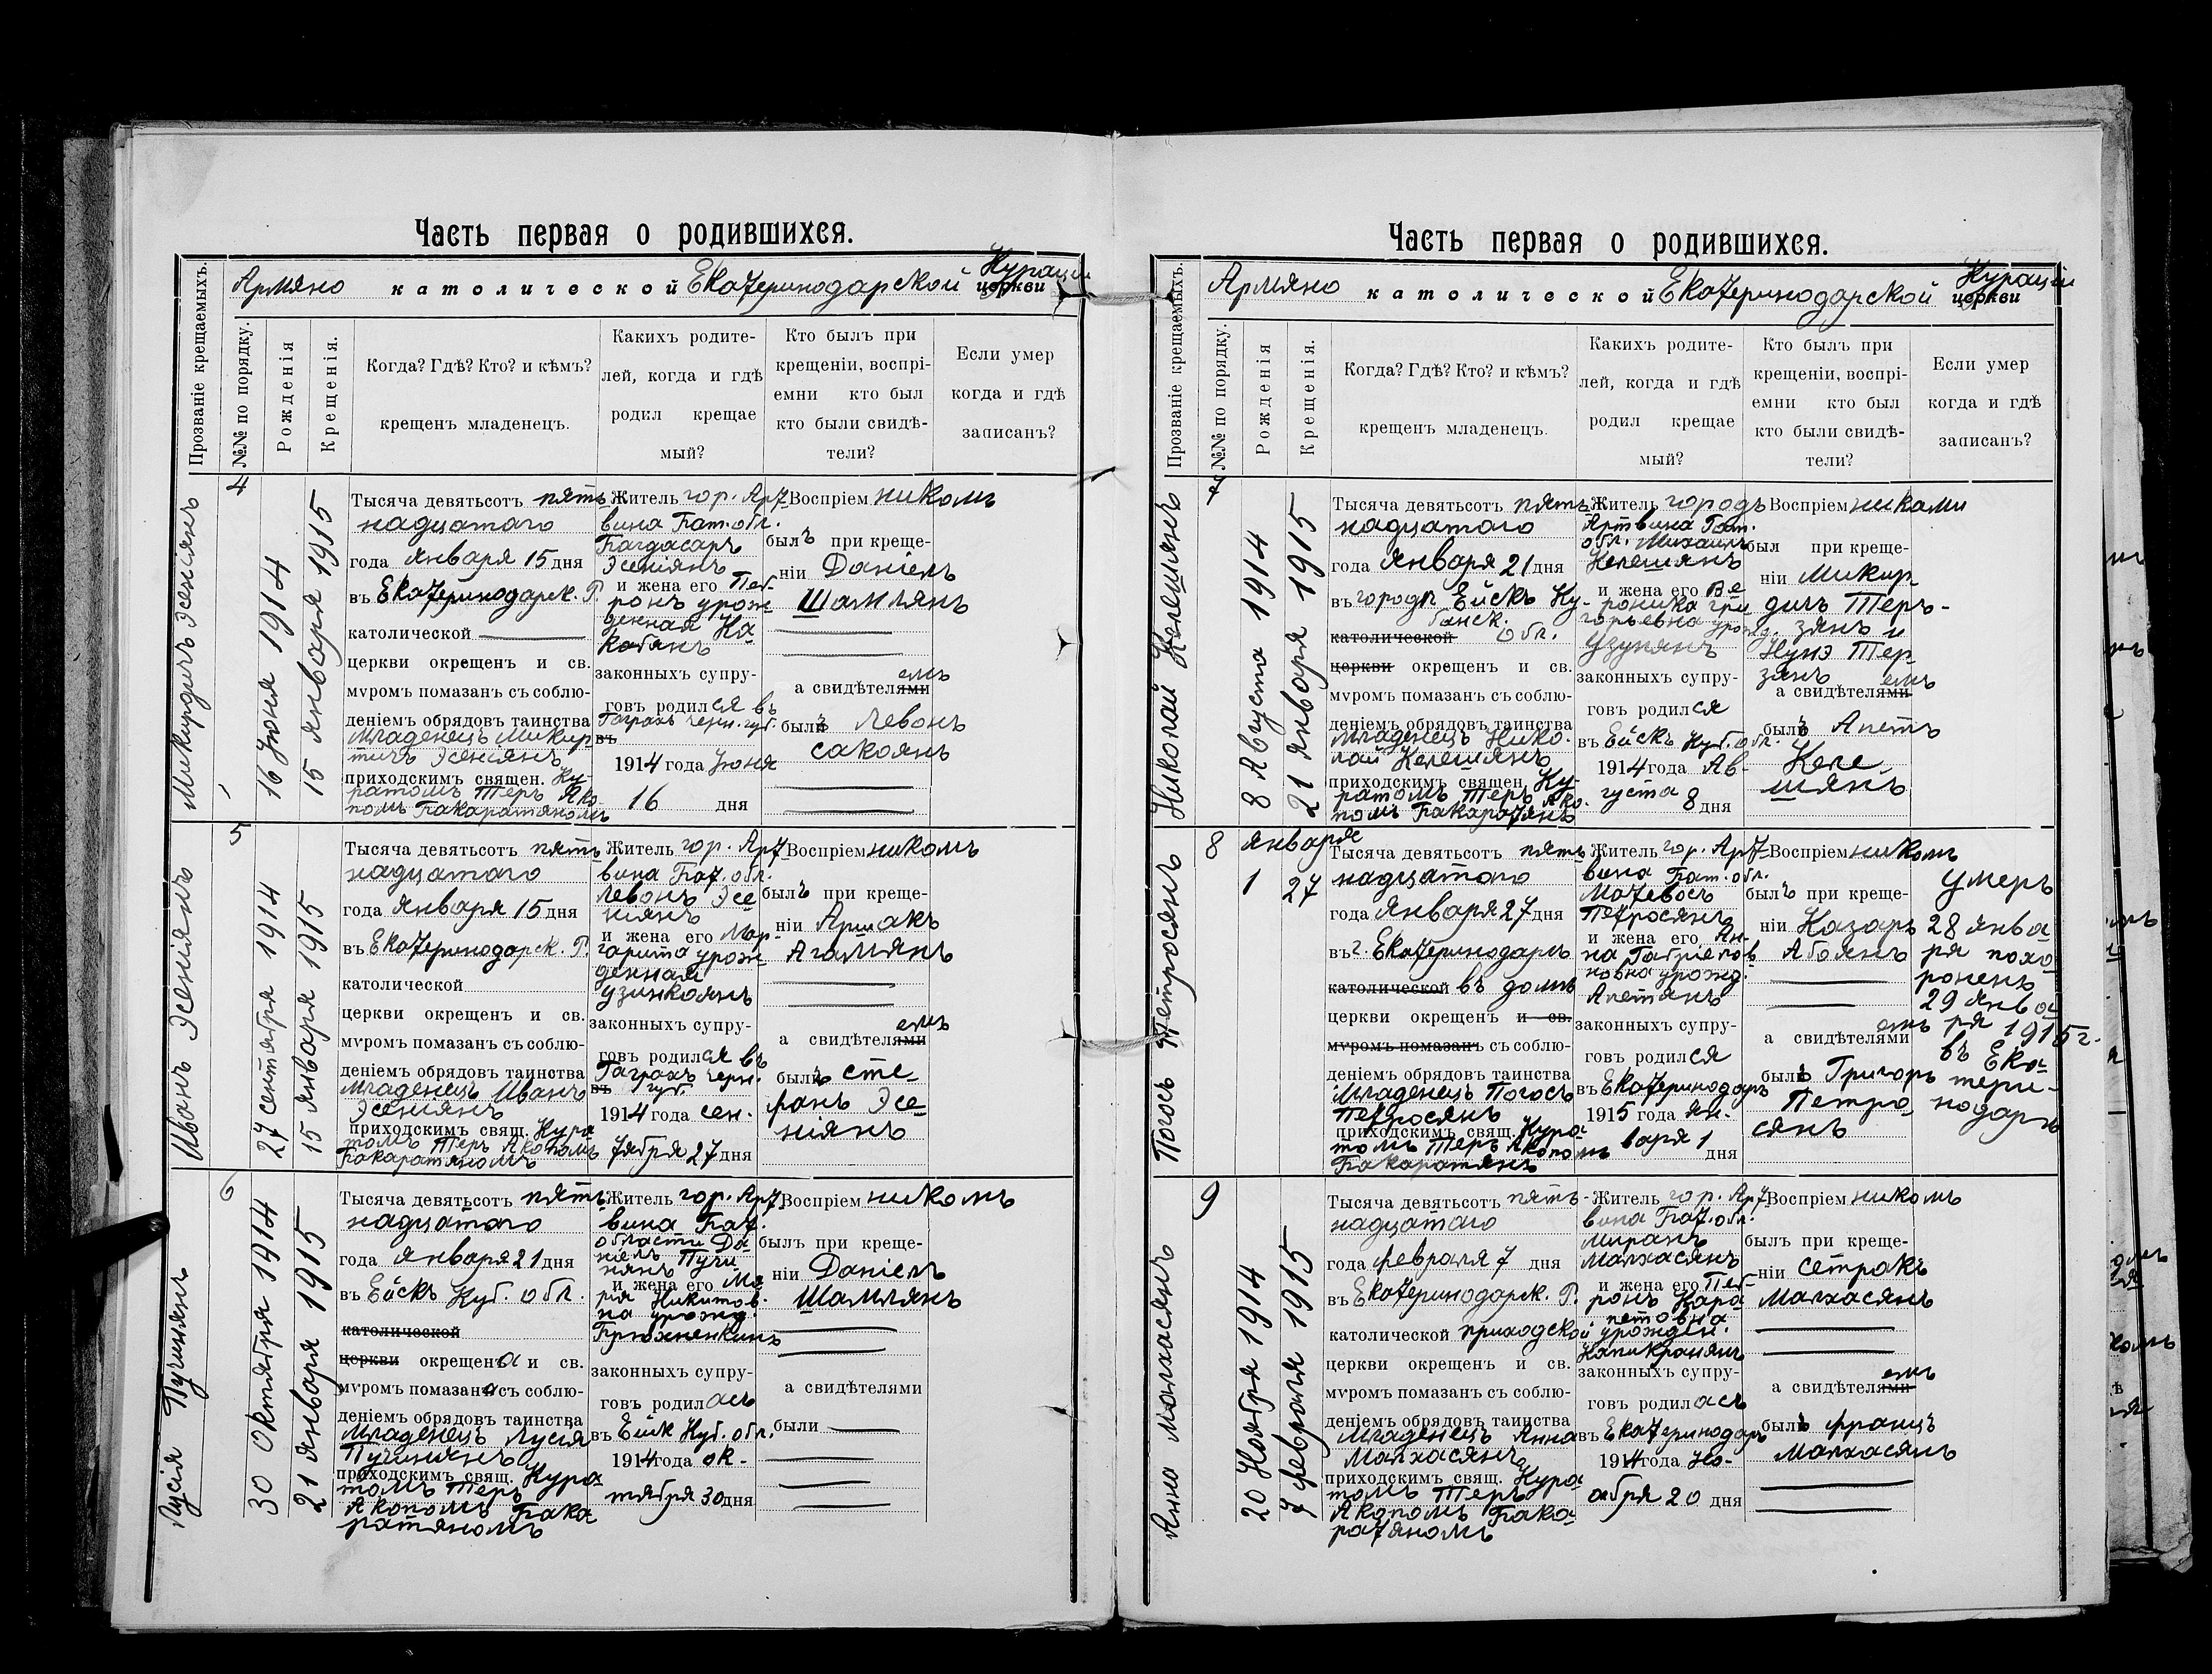 Часть первая о родившихся.
Армяно католической Екатеринодарской Курации церкви
Прозваніе крещаемыхъ.
№№ по порядку.
Рожденія
Крещенія.
Когда? Гдѣ? Кто? и кѣмъ?
крещенъ младенецъ.
Каихъ родите-
лей, когда и гдѣ
родил крещае
мый?
Кто былъ при
крещеніи, воспрі-
емни кто был
кто были свидѣ-
тели?
Если умер
когда и гдѣ
записанъ?
Микиртичъ Эсеніянъ
4
16 Іюня 1914
15 января 1915
Тысяча девятьсот пят-
надцатаго
года Января 15 дня
въ Екатеринодарск. Р.
католической
церкви окрещен и св.
мѵром помазан съ соблю-
деніемъ обрядовъ таинства
Младенецъ Микир
тичъ Эсеніянъ
приходскимъ священ. Ку-
ратомъ Теръ Ако-
помъ Бакаратяномъ
Житель гор. Арт-
вина Бат. обл.
Багдасаръ
Эсеніянъ
и жена его Пет-
ронъ урож-
денная
законныхъ супру-
говъ родился въ
Гаграхъ Черн. губ.
въ
1914 года Іюня
16 дня
Воспріем никомъ
былъ при креще-
ніи Даніелъ
Шамлянъ
а свидѣтелями емъ
былъ Левонъ
Сакоянъ
Иванъ Эсеніянъ
5
27 сентября 1914
15 января 1915
Тысяча девятьсот пят-
надцатаго
года Января 15 дня
въ Екатеринодарск. Р.
католической
церкви окрещен и св.
мѵром помазан съ соблю-
деніемъ обрядовъ таинства
Младенецъ Иванъ
Эсеніянъ
приходскимъ свящ. Кура
томъ Теръ Акопомъ
Бакаратяномъ
Житель гор. Арт-
вина Бат. обл.
Левонъ Эсе-
ніянъ
и жена его Мар-
гарита урож-
денная
Узинкоянъ
законныхъ супру-
говъ родился въ
Гаграхъ Черн.
въ губ.
1914 года сен-
тября 27 дня
Воспріем никомъ
былъ при креще-
ніи Аршакъ
Агамянъ
а свидѣтелями емъ
былъ Сте-
фанъ Эсе-
ніянъ
Лусія Пучинянъ
6
30 Октября 1914
21 января 1915
Тысяча девятьсот пят-
надцатаго
года Января 21 дня
въ Ейскъ Куб. обл.
католической
церкви окрещена и св.
мѵром помазана съ соблю-
деніемъ обрядовъ таинства
Младенецъ Лусія
Пучинянъ
приходскимъ свящ. Кура
томъ Теръ
Акопомъ Бака
ратяномъ
Житель гор. Арт-
вина Бат.
области Да-
ніелъ Пучи
нянъ
и жена его Ма
рія Никитов-
на урожд.
законныхъ супру-
говъ родилась
въ Ейск Куб. обл.
1914 года ок-
тября 30 дня
Воспріем никомъ
былъ при креще-
ніи Даніелъ
Шамлянъ
а свидѣтелями
были
Часть первая о родившихся.
Армяно католической Екатеринодарской Курации церкви
Прозваніе крещаемыхъ.
№№ по порядку.
Рожденія
Крещенія.
Когда? Гдѣ? Кто? и кѣмъ?
крещенъ младенецъ.
Какихъ родите-
лей, когда и гдѣ
родил крещае
мый?
Кто былъ при
крещеніи, воспрі-
емни кто был
кто были свидѣ-
тели?
Если умер
когда и гдѣ
записанъ?
Николай Келешянъ
7
8 Августа 1914
21 января 1915
Тысяча девятьсот пят-
надцатаго
года Января 21 дня
въ городѣ Ейскъ Ку-
банск.
католической обл.
церкви окрещен и св.
мѵром помазан съ соблю-
деніемъ обрядовъ таинства
Младенецъ Нико-
лай Келешянъ
приходскимъ священ. Ку-
ратомъ Теръ Ако-
помъ Бакаратянъ
Житель городъ
Артвина Бат.
обл. Михаилъ
Келешянъ
и жена его Ве
роника Гри
горьевна урожд.
Узунянъ
законныхъ супру-
говъ родился
въ Ейскъ Куб. обл.
1914 года Ав-
густа 8 дня
Воспріем никами
был при креще-
ніи Микир
дичъ Теръ-
зянъ и
Нунэ Тер
зянъ
а свидѣтелями емъ
былъ Апетъ
Келе-
шянъ
Погосъ Петросянъ
8
Января
1
27
Тысяча девятьсот пят-
надцатаго
года Января 27 дня
въ г. Екатеринодаръ
католической въ домѣ
церкви окрещен и св.
мѵром помазанъ съ соблю-
деніемъ обрядовъ таинства
Младенецъ Погосъ
Петросянъ
приходскимъ свящ. Кура-
томъ Теръ Акопомъ
Бакаратянъ
Житель гор. Арт-
вина Бат. обл.
Матевосъ
Петросянъ
и жена его Ан-
на Габріелов
новна урожд.
Апетянъ
законныхъ супру-
говъ родился
въ Екатеринодаръ
1915 года Ян-
варя 1 дня
Воспріем никомъ
былъ при креще-
ніи Казаръ
Абоянъ
а свидѣтелями емъ
былъ Григоръ
Петро
сянъ
Умеръ
28 янва
ря похо
роненъ
29 янва
ря 1915 г.
въ Ека-
тери-
нодаръ
Анна Малхасянъ
9
20 Ноября 1914
7 февраля 1915
Тысяча девятьсот пят-
надцатаго
года февраля 7 дня
въ Екатеринодарск. Р.
католической приходской
церкви окрещен и св.
мѵром помазан съ соблю-
деніемъ обрядовъ таинства
Младенецъ Анна
Малхасянъ
приходскимъ свящ. Кура-
томъ Теръ
Акопомъ Бака-
ратяномъ
Житель гор. Арт-
вина Бат. обл.
Миранъ
Малхасянъ
и жена его Пет-
ронъ Кара
петовна
урожден.
законныхъ супру-
говъ родилась
въ Екатеринодаръ
1914 года Но-
ября 20 дня
Воспріем никомъ
былъ при креще-
ніи Сетракъ
Малхасянъ
а свидѣтелями емъ
былъ Францъ
Малхасянъ